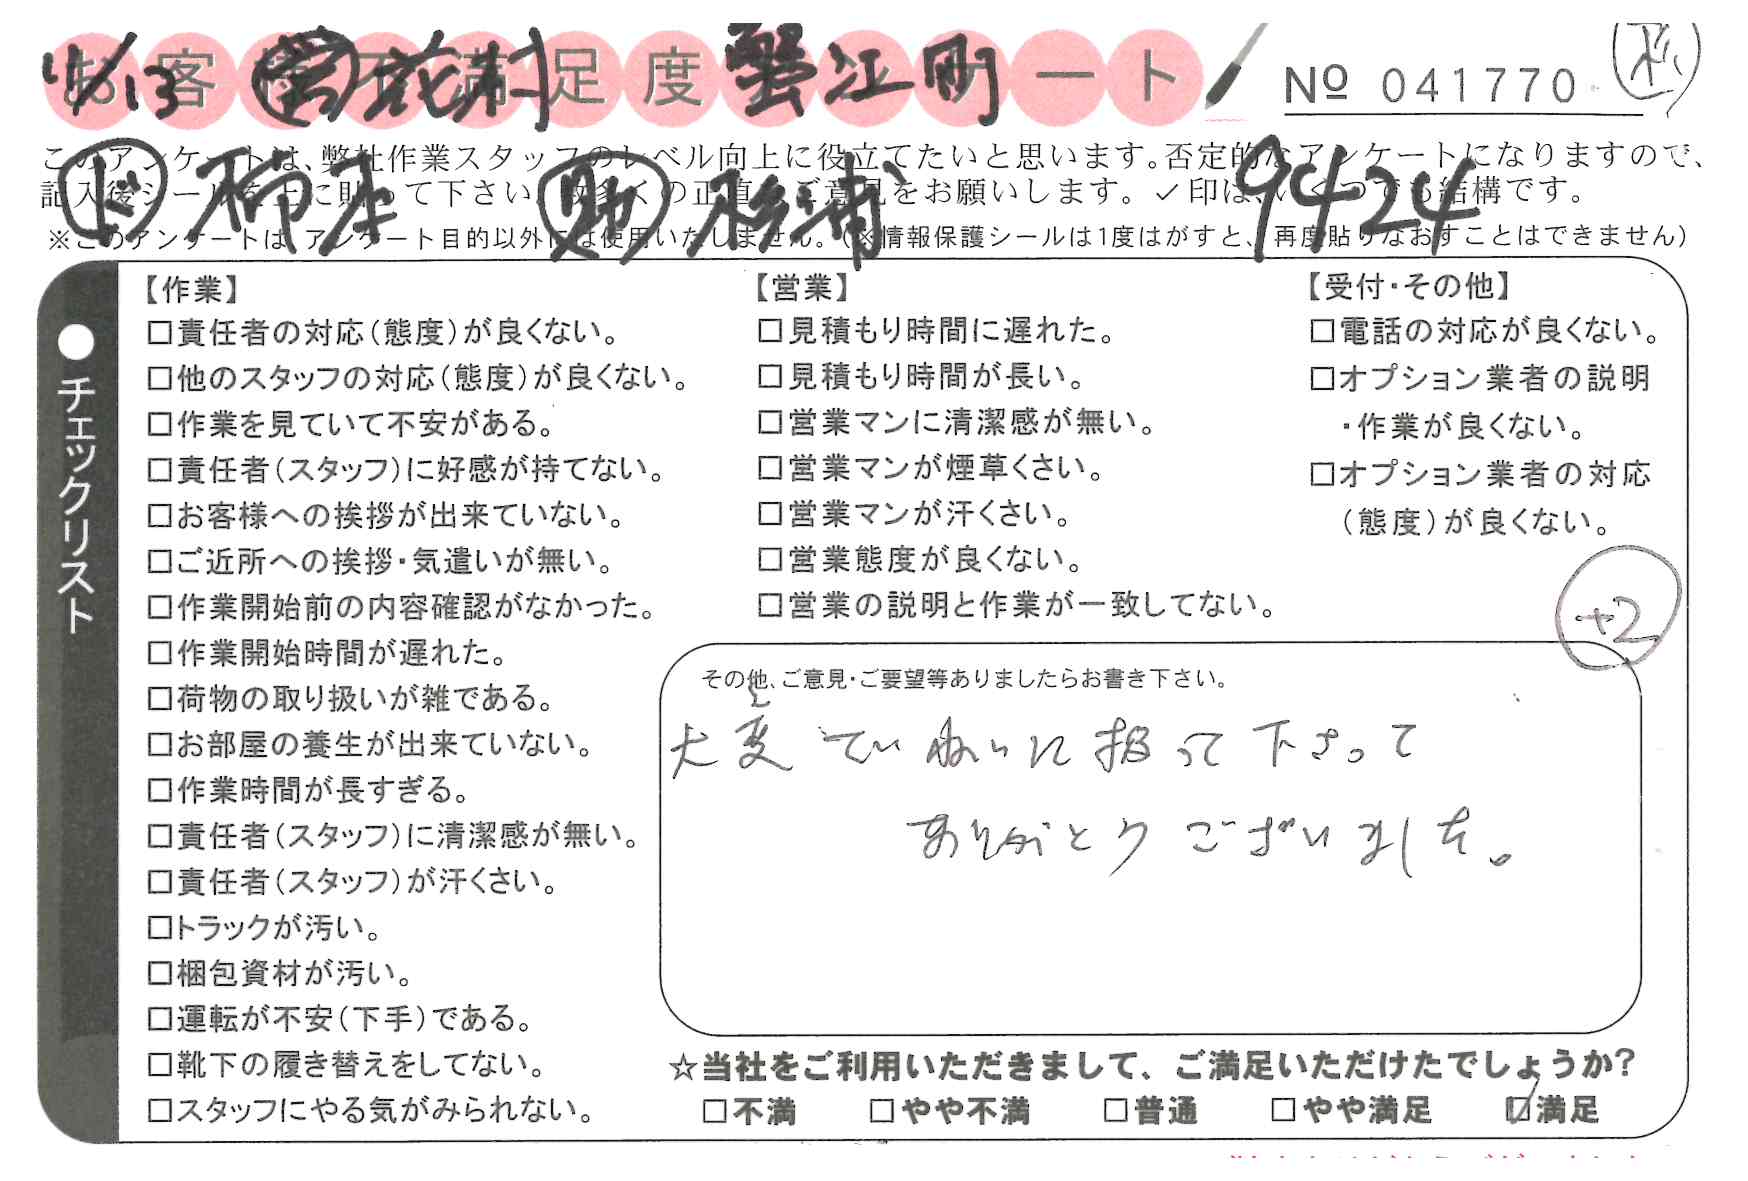 お客様不満足度アンケート
11/13 営 花村 蟹江町
№ 041770
このアンケートは、弊社作業スタッフのレベル向上に役立てたいと思います。否定的なアンケートになりますので、
記入後シールを上に貼って下さい。数多くの正直なご意見をお願いします。✓印は、いくつでも結構です。
ド 柳本 助 杉浦 9424
※このアンケートは、アンケート目的以外には使用いたしません。(※情報保護シールは1度はがすと、再度貼りなおすことはできません)
●チェックリスト
【作業】
□責任者の対応(態度)が良くない。
□他のスタッフの対応(態度)が良くない。
□作業を見ていて不安がある。
□責任者(スタッフ)に好感が持てない。
□お客様への挨拶が出来ていない。
□ご近所への挨拶・気遣いが無い。
□作業開始前の内容確認がなかった。
□作業開始時間が遅れた。
□荷物の取り扱いが雑である。
□お部屋の養生が出来ていない。
□作業時間が長すぎる。
□責任者(スタッフ)に清潔感が無い。
□責任者(スタッフ)が汗くさい。
□トラックが汚い。
□梱包資材が汚い。
□運転が不安(下手)である。
□靴下の履き替えをしてない。
□スタッフにやる気がみられない。
【営業】
□見積もり時間に遅れた。
□見積もり時間が長い。
□営業マンに清潔感が無い。
□営業マンが煙草くさい。
□営業マンが汗くさい。
□営業態度が良くない。
□営業の説明と作業が一致してない。
【受付・その他】
□電話の対応が良くない。
□オプション業者の説明
・作業が良くない。
□オプション業者の対応
(態度)が良くない。
+2
その他、ご意見・ご要望等ありましたらお書き下さい。
大変ていねいに扱って下さって
ありがとうございました。
☆当社をご利用いただきまして、ご満足いただけたでしょうか?
□不満 □やや不満 □普通 □やや満足 ☑満足